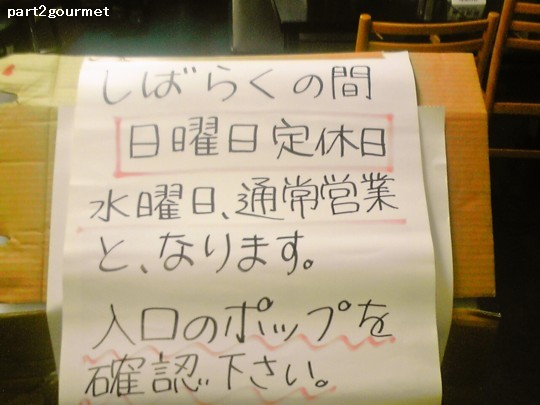 part2gourmet
しばらくの間
日曜日定休日
水曜日、通常営業
と、なります。
入口のポップを
確認下さい。